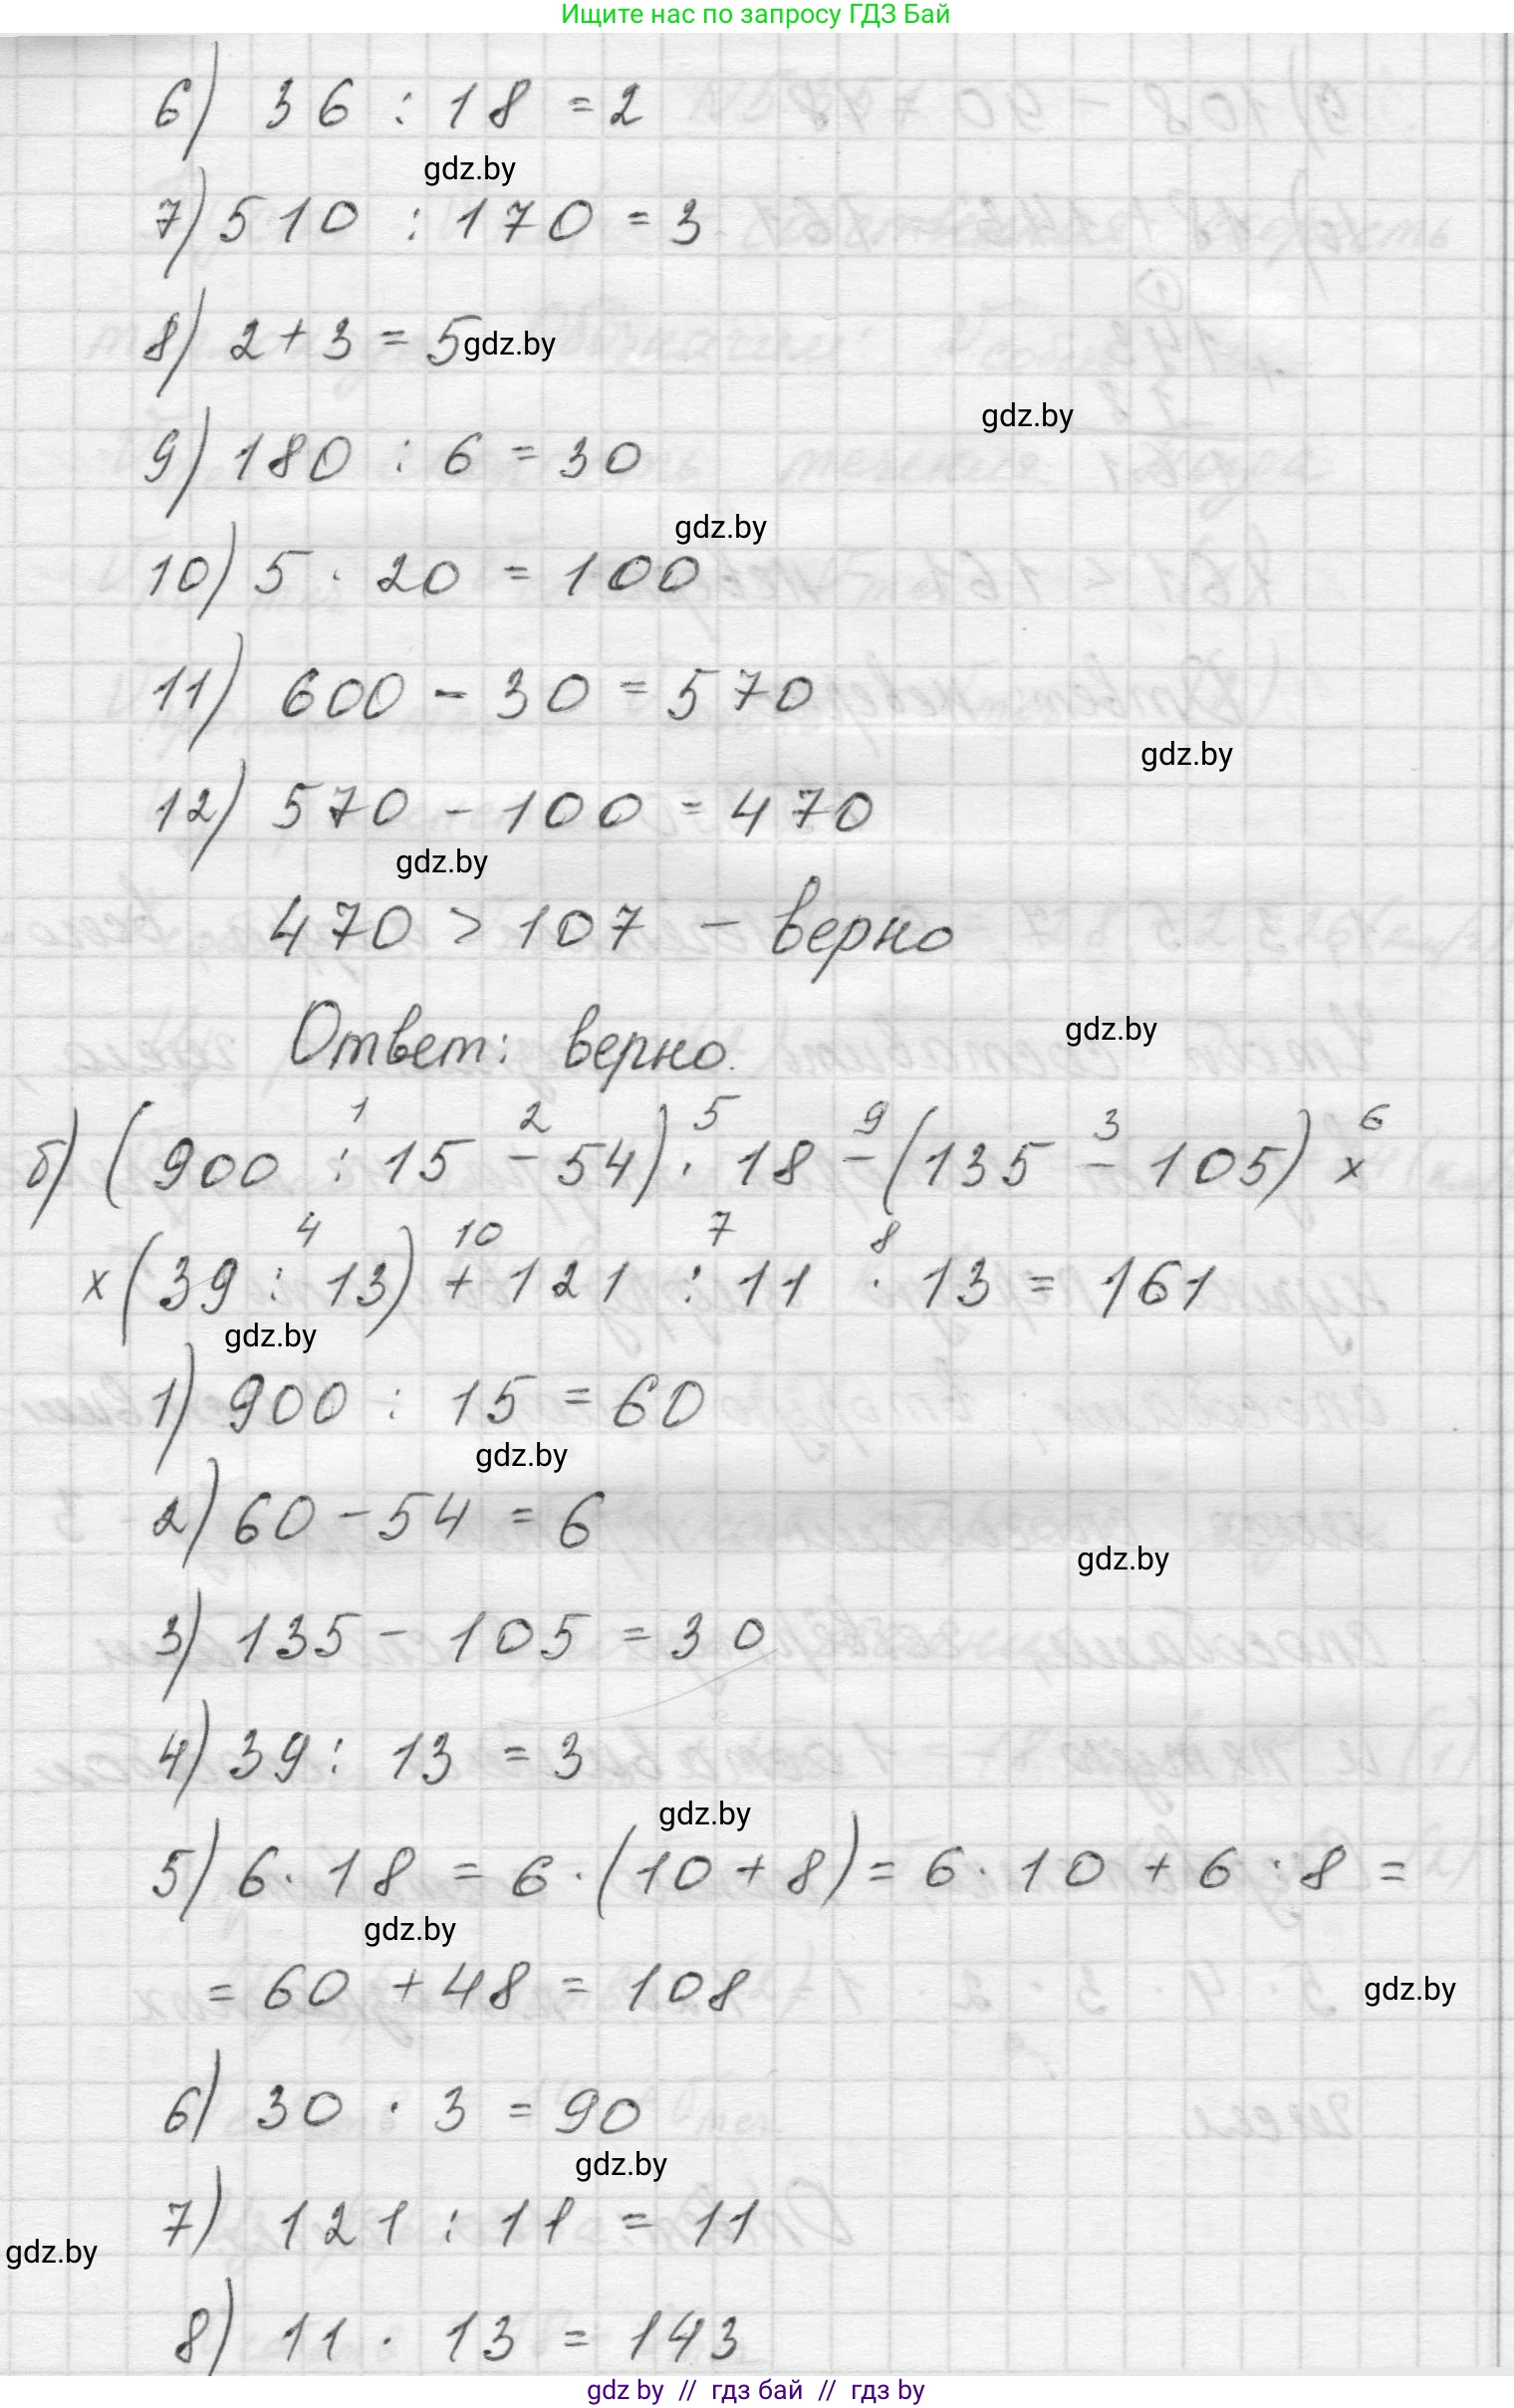 Ищите нас по запросу ГДЗ Бай
6) 36 : 18 = 2
gdz.by
7) 510 : 170 = 3
8) 2 + 3 = 5
gdz.by
gdz.by
9) 180 : 6 = 30
gdz.by
10) 5 · 20 = 100
11) 600 - 30 = 570
gdz.by
12) 570 - 100 = 470
gdz.by
470 > 107 - верно
gdz.by
Ответ: верно.
1 2 5 9 3 6
б) (900 : 15 - 54) · 18 - (135 - 105) ×
4 10 7 8
× (39 : 13) + 121 : 11 · 13 = 161
gdz.by
1) 900 : 15 = 60
gdz.by
2) 60 - 54 = 6
gdz.by
3) 135 - 105 = 30
4) 39 : 13 = 3
gdz.by
5) 6 · 18 = 6 · (10 + 8) = 6 · 10 + 6 · 8 =
gdz.by
= 60 + 48 = 108
gdz.by
6) 30 · 3 = 90
gdz.by
7) 121 : 11 = 11
gdz.by
8) 11 · 13 = 143
gdz by // гдз бай // гдз by